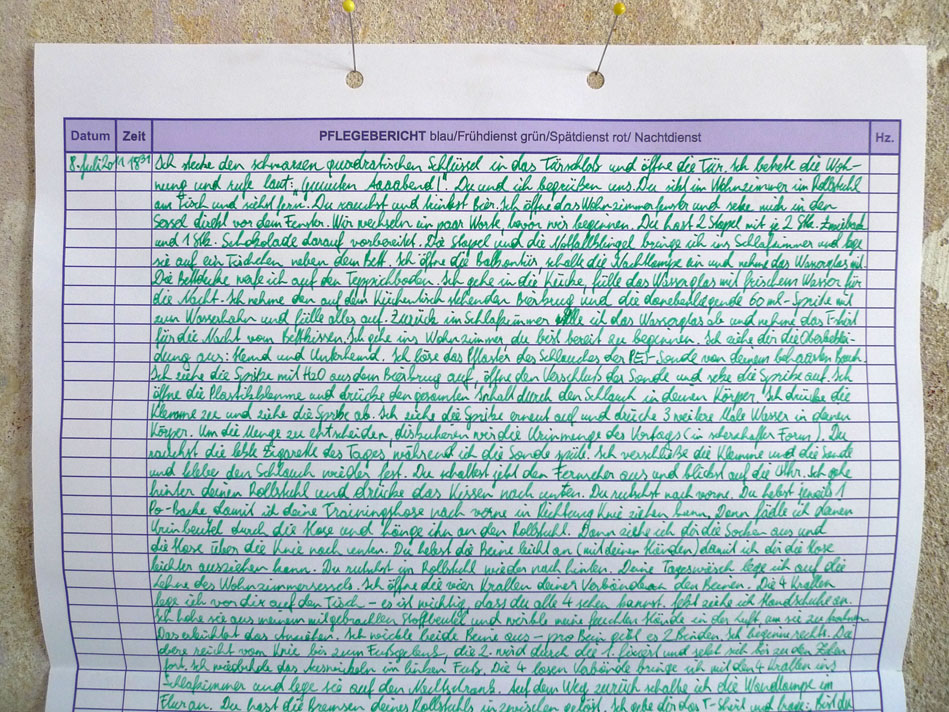 Datum Zeit PFLEGEBERICHT blau/Frühdienst grün/Spätdienst rot/ Nachtdienst Hz.
8. Juli 2011 18 31 Ich stecke den schwarzen, quadratischen Schlüssel in das Türschloss und öffne die Tür. Ich betrete die Woh-
nung und rufe laut: "Guuuten Aaaabend!". Du und ich begrüßen uns. Du sitzt im Wohnzimmer im Rollstuhl
am Tisch und siehst fern. Du rauchst und trinkst Bier. Ich öffne das Wohnzimmerfenster und setze mich in den
Sessel direkt vor dem Fenster. Wir wechseln ein paar Worte, bevor wir beginnen. Du hast 2 Stapel mit je 2 Stk. Zwieback
und 1 Stk. Schokolade darauf vorbereitet. Die Stapel und die Notfallklingel bringe ich ins Schlafzimmer und lege
sie auf ein Tischchen neben dem Bett. Ich öffne die Balkontür, schalte die Nachtlampe ein und nehme das Wasserglas mit.
Die Bettdecke werfe ich auf den Teppichboden. Ich gehe in die Küche, fülle das Wasserglas mit frischem Wasser für
die Nacht. Ich nehme den auf dem Küchentisch stehenden Bierkrug und die danebenliegende 60 ml-Spritze mit
zum Wasserhahn und fülle alles auf. Zurück im Schlafzimmer stelle ich das Wasserglas ab und nehme das T-Shirt
für die Nacht vom Bettkissen. Ich gehe ins Wohnzimmer, du bist bereit zu beginnen. Ich ziehe dir die Oberbeklei-
dung aus: Hemd und Unterhemd. Ich löse das Pflaster des Schlauches der PEJ-Sonde von deinem behaarten Bauch.
Ich ziehe die Spritze mit H2O aus dem Bierkrug auf, öffne den Verschluss der Sonde und setze die Spritze auf. Ich
öffne die Plastikklemme und drücke den gesamten Inhalt durch den Schlauch in deinen Körper. Ich drücke die
Klemme zu und ziehe die Spritze ab. Ich ziehe die Spritze erneut auf und drücke 3 weitere Male Wasser in deinen
Körper. Um die Menge zu entscheiden, diskutieren wir die Urinmenge des Vortages (in scherzhafter Form). Du
rauchst die letzte Zigarette des Tages während ich die Sonde spüle. Ich verschließe die Klemme und die Sonde
und klebe den Schlauch wieder fest. Du schaltest jetzt den Fernseher aus und blickst auf die Uhr. Ich gehe
hinter deinen Rollstuhl und drücke das Kissen nach unten. Du rutschst nach vorne. Du hebst jeweils 1
Po-Backe damit ich deine Trainingshose nach vorne in Richtung Knie ziehen kann. Dann fädle ich deinen
Urinbeutel durch die Hose und hänge ihn an den Rollstuhl. Dann ziehe ich dir die Socken aus und
die Hose über die Knie nach unten. Du hebst die Beine leicht an (mit deinen Händen) damit ich dir die Hose
leichter ausziehen kann. Du rutschst im Rollstuhl wieder nach hinten. Deine Tageswäsche lege ich auf die
Lehne des Wohnzimmersessels. Ich öffne die vier Krallen deiner Verbände an den Beinen. Die 4 Krallen
lege ich vor dir auf den Tisch – es ist wichtig, dass du alle 4 sehen kannst. Jetzt ziehe ich Handschuhe an.
Ich hole sie aus meinem mitgebrachten Stoffbeutel und wirble meine feuchten Hände in der Luft um sie zu trocknen.
Das erleichtert das Anziehen. Ich wickle beide Beine aus – pro Bein gibt es 2 Binden. Ich beginne rechts. Die
obere reicht vom Knie bis zum Fußgelenk, die 2. wird durch die 1. fixiert und setzt sich bis zu den Zehen
fort. Ich wiederhole das Auswickeln im linken Fuß. Die 4 losen Verbände bringe ich mit den 4 Krallen ins
Schlafzimmer und lege sie auf den Nachtschrank. Auf dem Weg zurück schalte ich die Wandlampe im
Flur an. Du hast die Bremsen deines Rollstuhls inzwischen gelöst. Ich gebe dir das T-Shirt und frage: Bist du